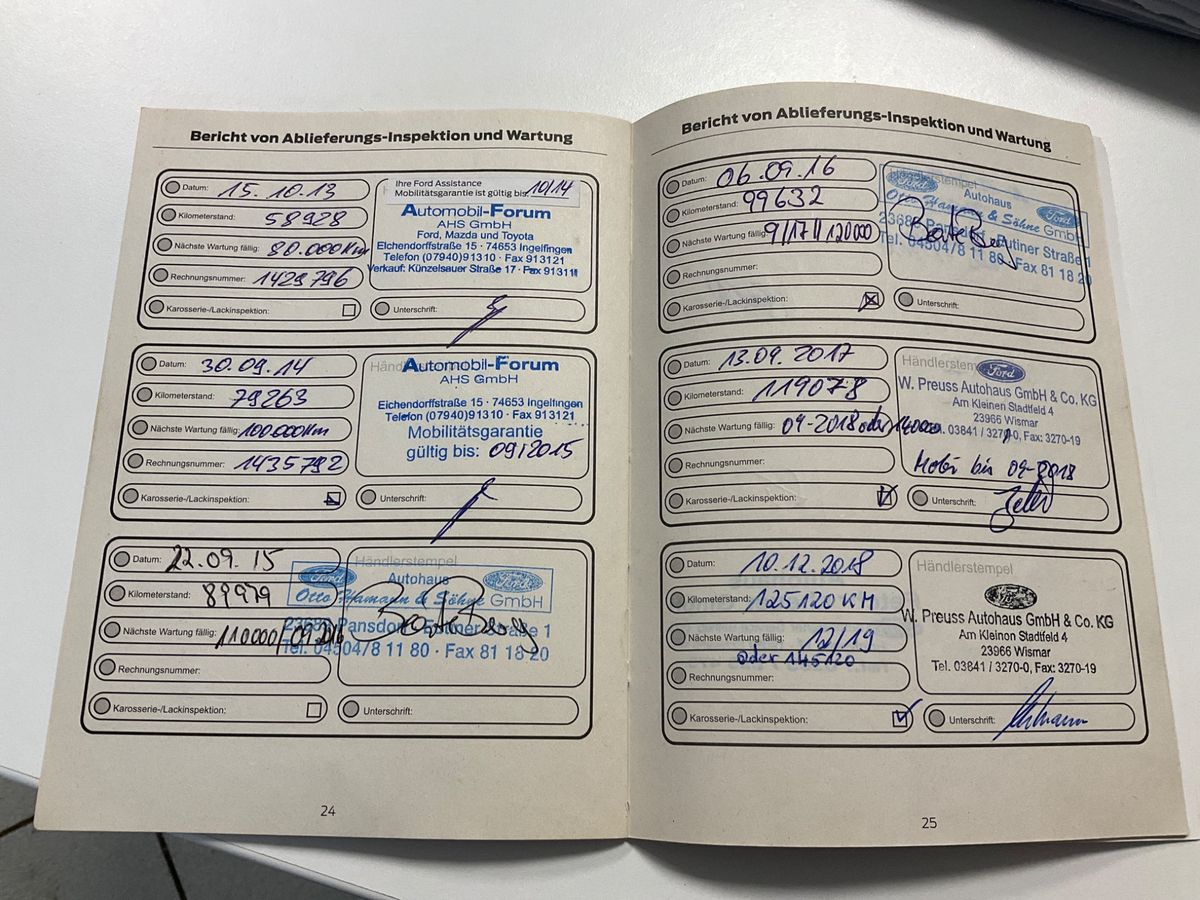 Bericht von Ablieferungs-Inspektion und Wartung
Datum: 15.10.13
Kilometerstand: 58928
Nächste Wartung fällig: 80.000Km
Rechnungsnummer: 1429796
Karosserie-/Lackinspektion:
Ihre Ford Assistance
Mobilitätsgarantie ist gültig bis: 10/14
Automobil-Forum
AHS GmbH
Ford, Mazda und Toyota
Eichendorffstraße 15 · 74653 Ingelfingen
Telefon (07940)91310 · Fax 913121
Verkauf: Künzelsauer Straße 17 · Fax 913111
Unterschrift:
Datum: 30.09.14
Kilometerstand: 79263
Nächste Wartung fällig: 100.000Km
Rechnungsnummer: 1435792
Karosserie-/Lackinspektion:
Automobil-Forum
AHS GmbH
Eichendorffstraße 15 · 74653 Ingelfingen
Telefon (07940)91310 · Fax 913121
Mobilitätsgarantie
gültig bis: 09/2015
Unterschrift:
Datum: 22.09.15
Kilometerstand: 89979
Nächste Wartung fällig: 110000/09.2016
Rechnungsnummer:
Karosserie-/Lackinspektion:
Händlerstempel
Ford Autohaus Ford
Otto Hamann & Söhne GmbH
23689 Pansdorf Eutiner Straße 1
Tel. 04504/8 11 80 · Fax 81 18 20
Unterschrift:
24
Bericht von Ablieferungs-Inspektion und Wartung
Datum: 06.09.16
Kilometerstand: 99632
Nächste Wartung fällig: 9/17//120000
Rechnungsnummer:
Karosserie-/Lackinspektion:
Händlerstempel
Ford Autohaus Ford
Otto Hamann & Söhne GmbH
23689 Pansdorf Eutiner Straße 1
Tel. 04504/8 11 80 · Fax 81 18 20
Unterschrift:
Datum: 13.09.2017
Kilometerstand: 119078
Nächste Wartung fällig: 09-2018 oder 140000
Rechnungsnummer:
Karosserie-/Lackinspektion:
Händlerstempel
Ford
W. Preuss Autohaus GmbH & Co. KG
Am Kleinen Stadtfeld 4
23966 Wismar
Tel. 03841 / 3270-0, Fax: 3270-19
Mobi bis 09-2018
Unterschrift:
Datum: 10.12.2018
Kilometerstand: 125120 KM
Nächste Wartung fällig: 12/19
oder 145120
Rechnungsnummer:
Karosserie-/Lackinspektion:
Händlerstempel
W. Preuss Autohaus GmbH & Co. KG
Am Kleinon Stadtfeld 4
23966 Wismar
Tel. 03841 / 3270-0, Fax: 3270-19
Unterschrift:
25